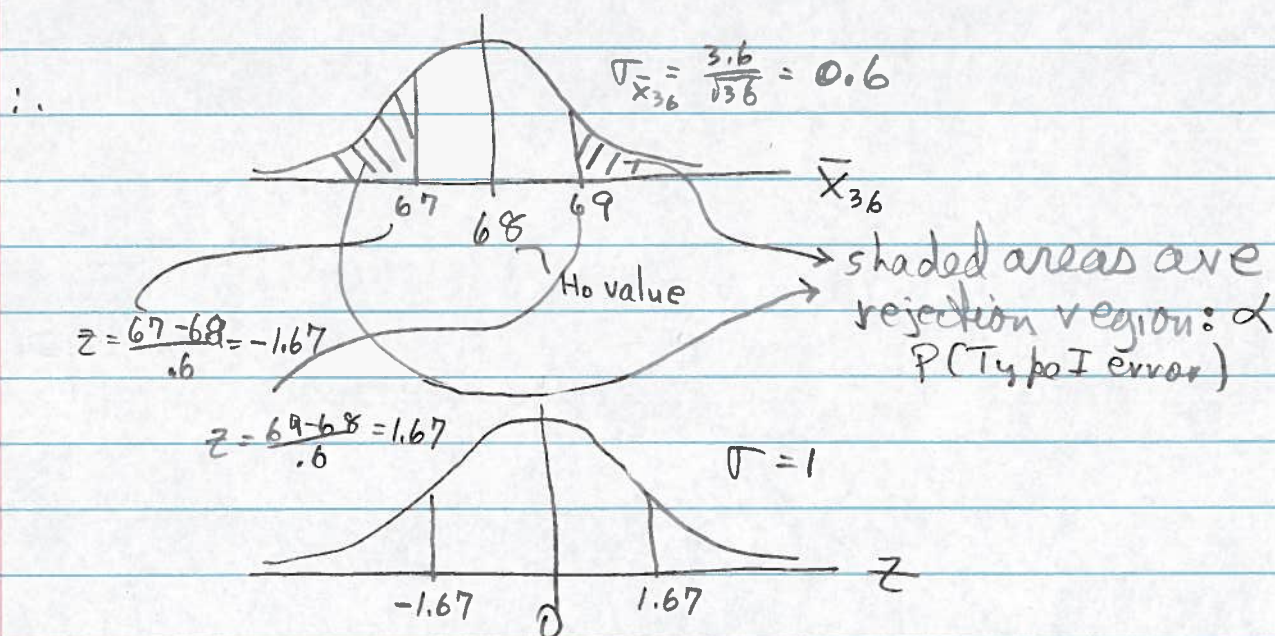 ∴
σ_X̄₃₆ = 3.6/√36 = 0.6
67 68 69 X̄₃₆
Ho value
shaded areas are
rejection region: α
P(Type I error)
z = 67-68/.6 = -1.67
z = 69-68/.6 = 1.67
σ = 1
-1.67 0 1.67 Z